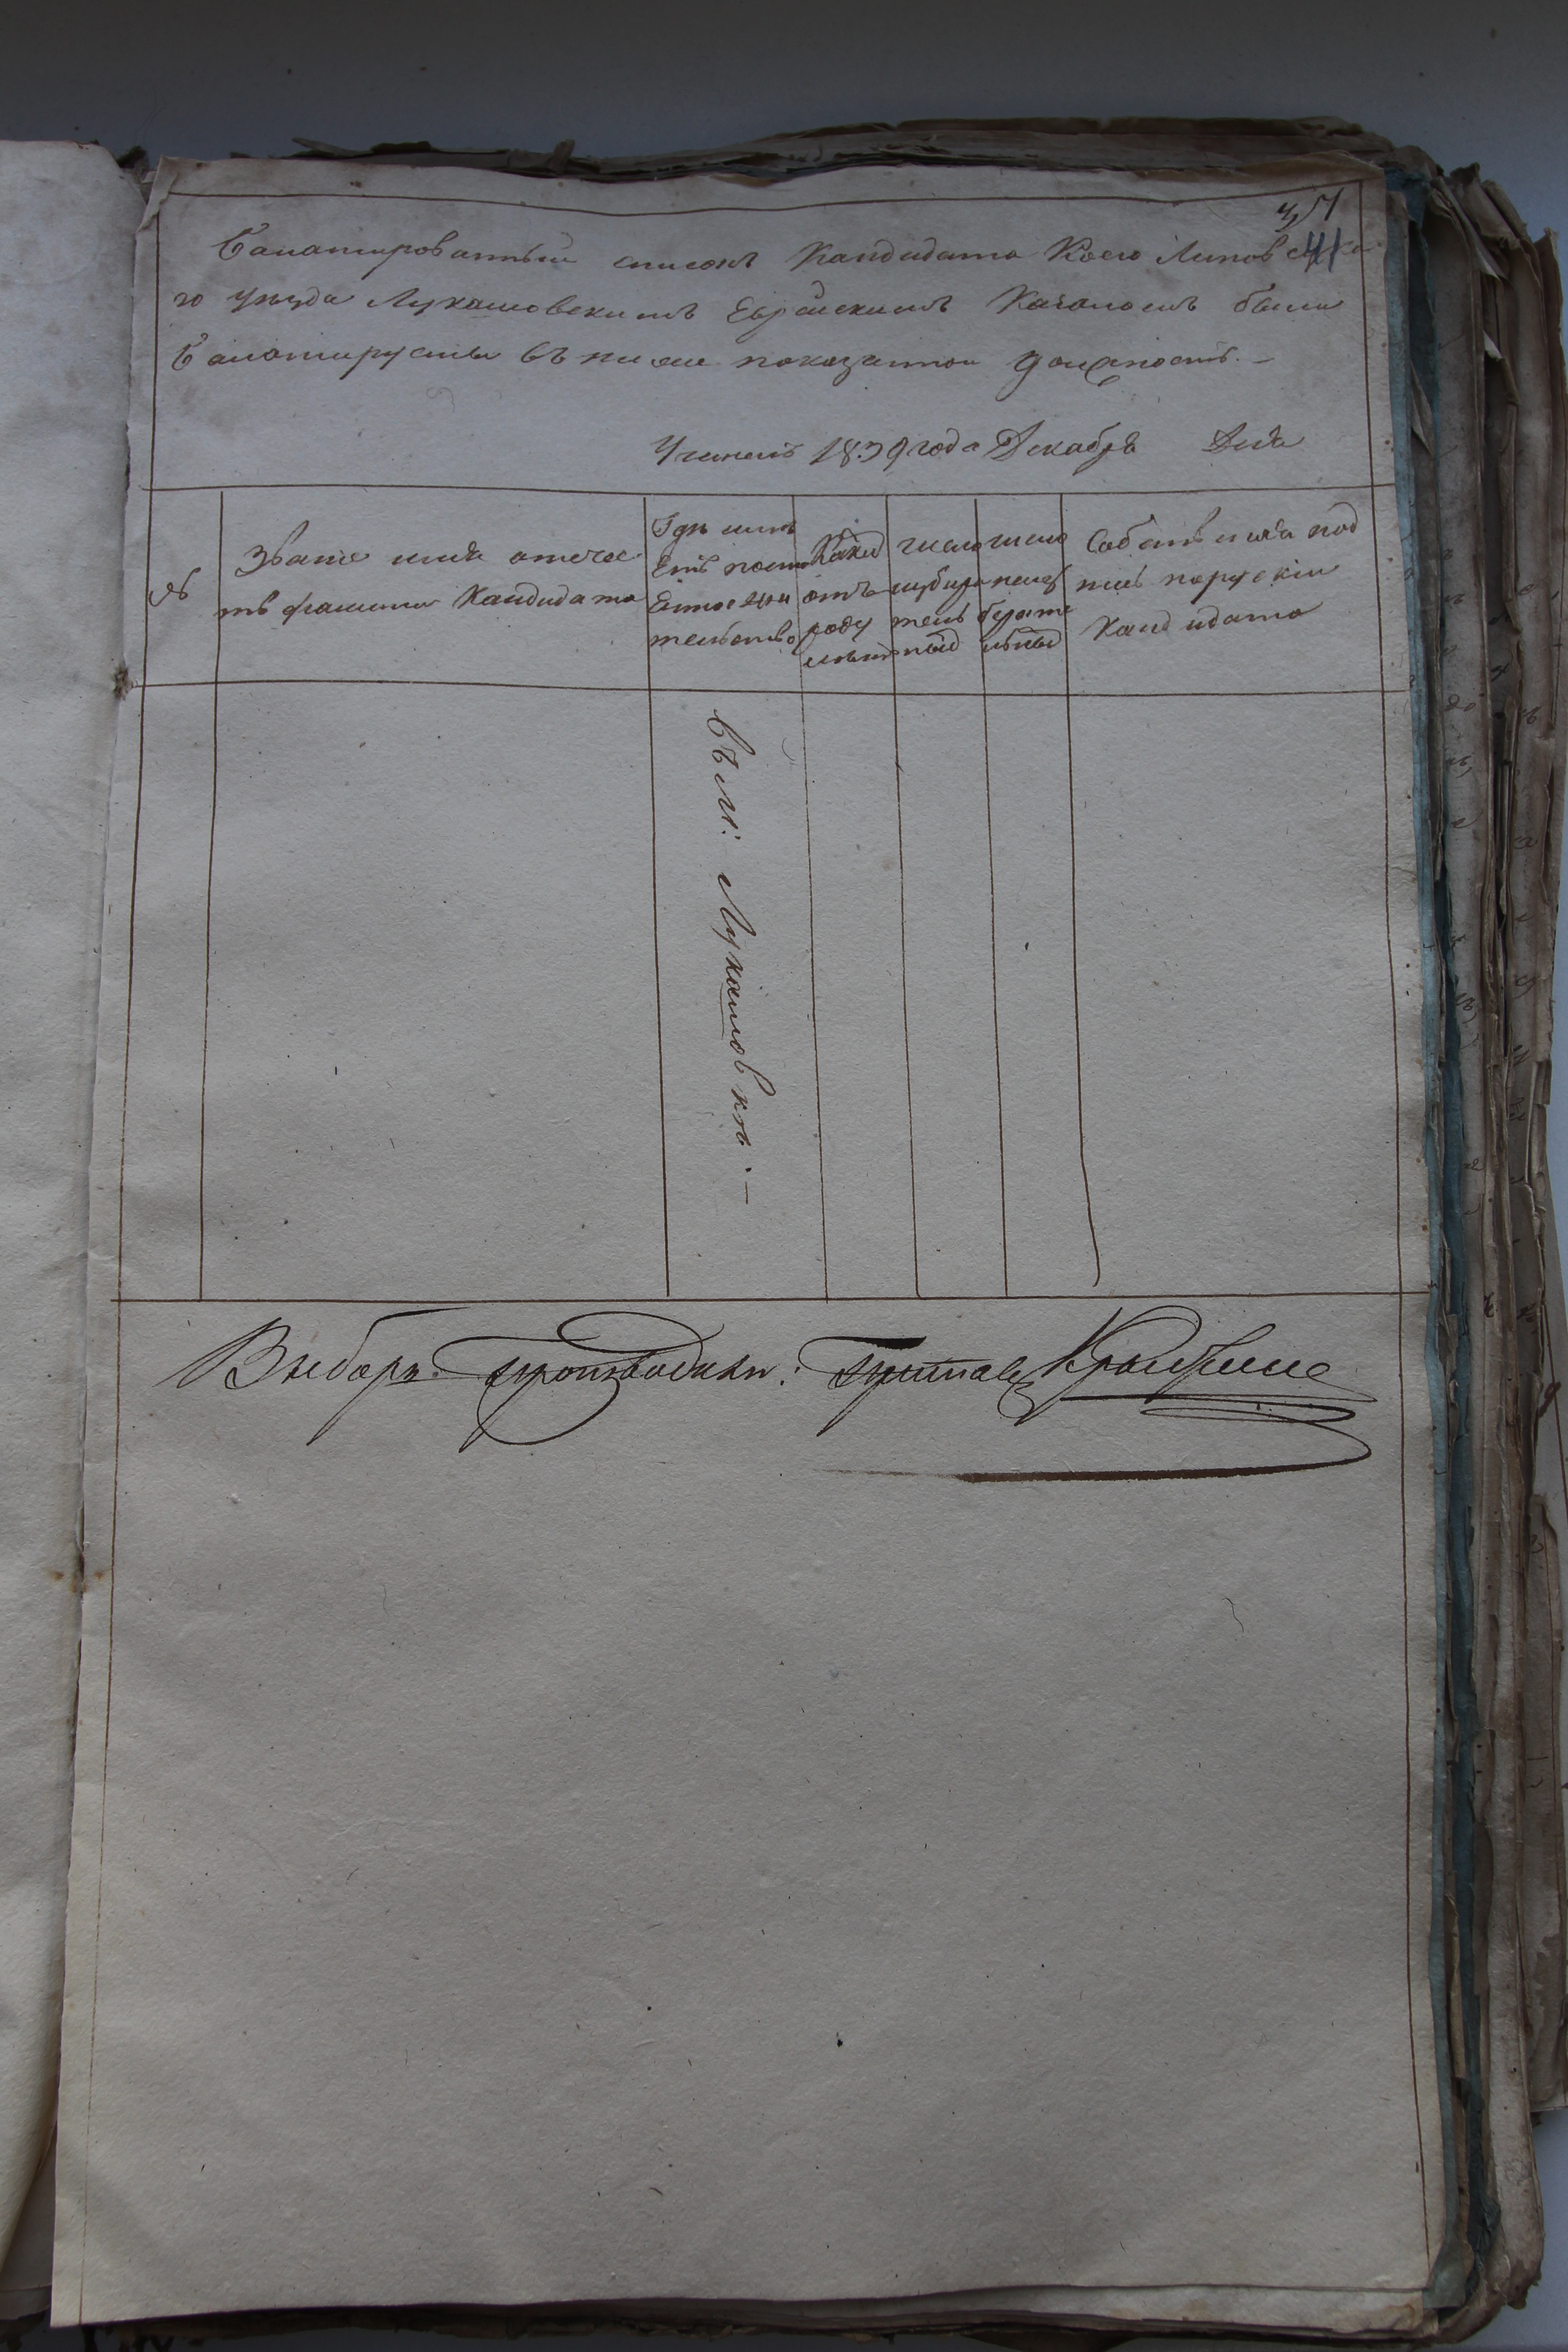 41
Балатированный списокъ Кандидата Коего Липовецка
го уѣзда Лукашовскимъ Еврейскимъ Кагаломъ были
балатируемы въ ниже показанной должность. —
Учиненъ 1839 года Декабря Дня
№
Званіе имя отечес
тв фамили Кандидата
Гдѣ имѣ
Етъ посто
Енное жи
тельство
Какы
отъ
роду
лѣтъ
число
избира
тель
ныхъ
число
неиз
бирате
льныхъ
Собственная под
пись поруски
кандидата
въ м: Лукашовкѣ. —
Выборъ производилъ: Приставъ